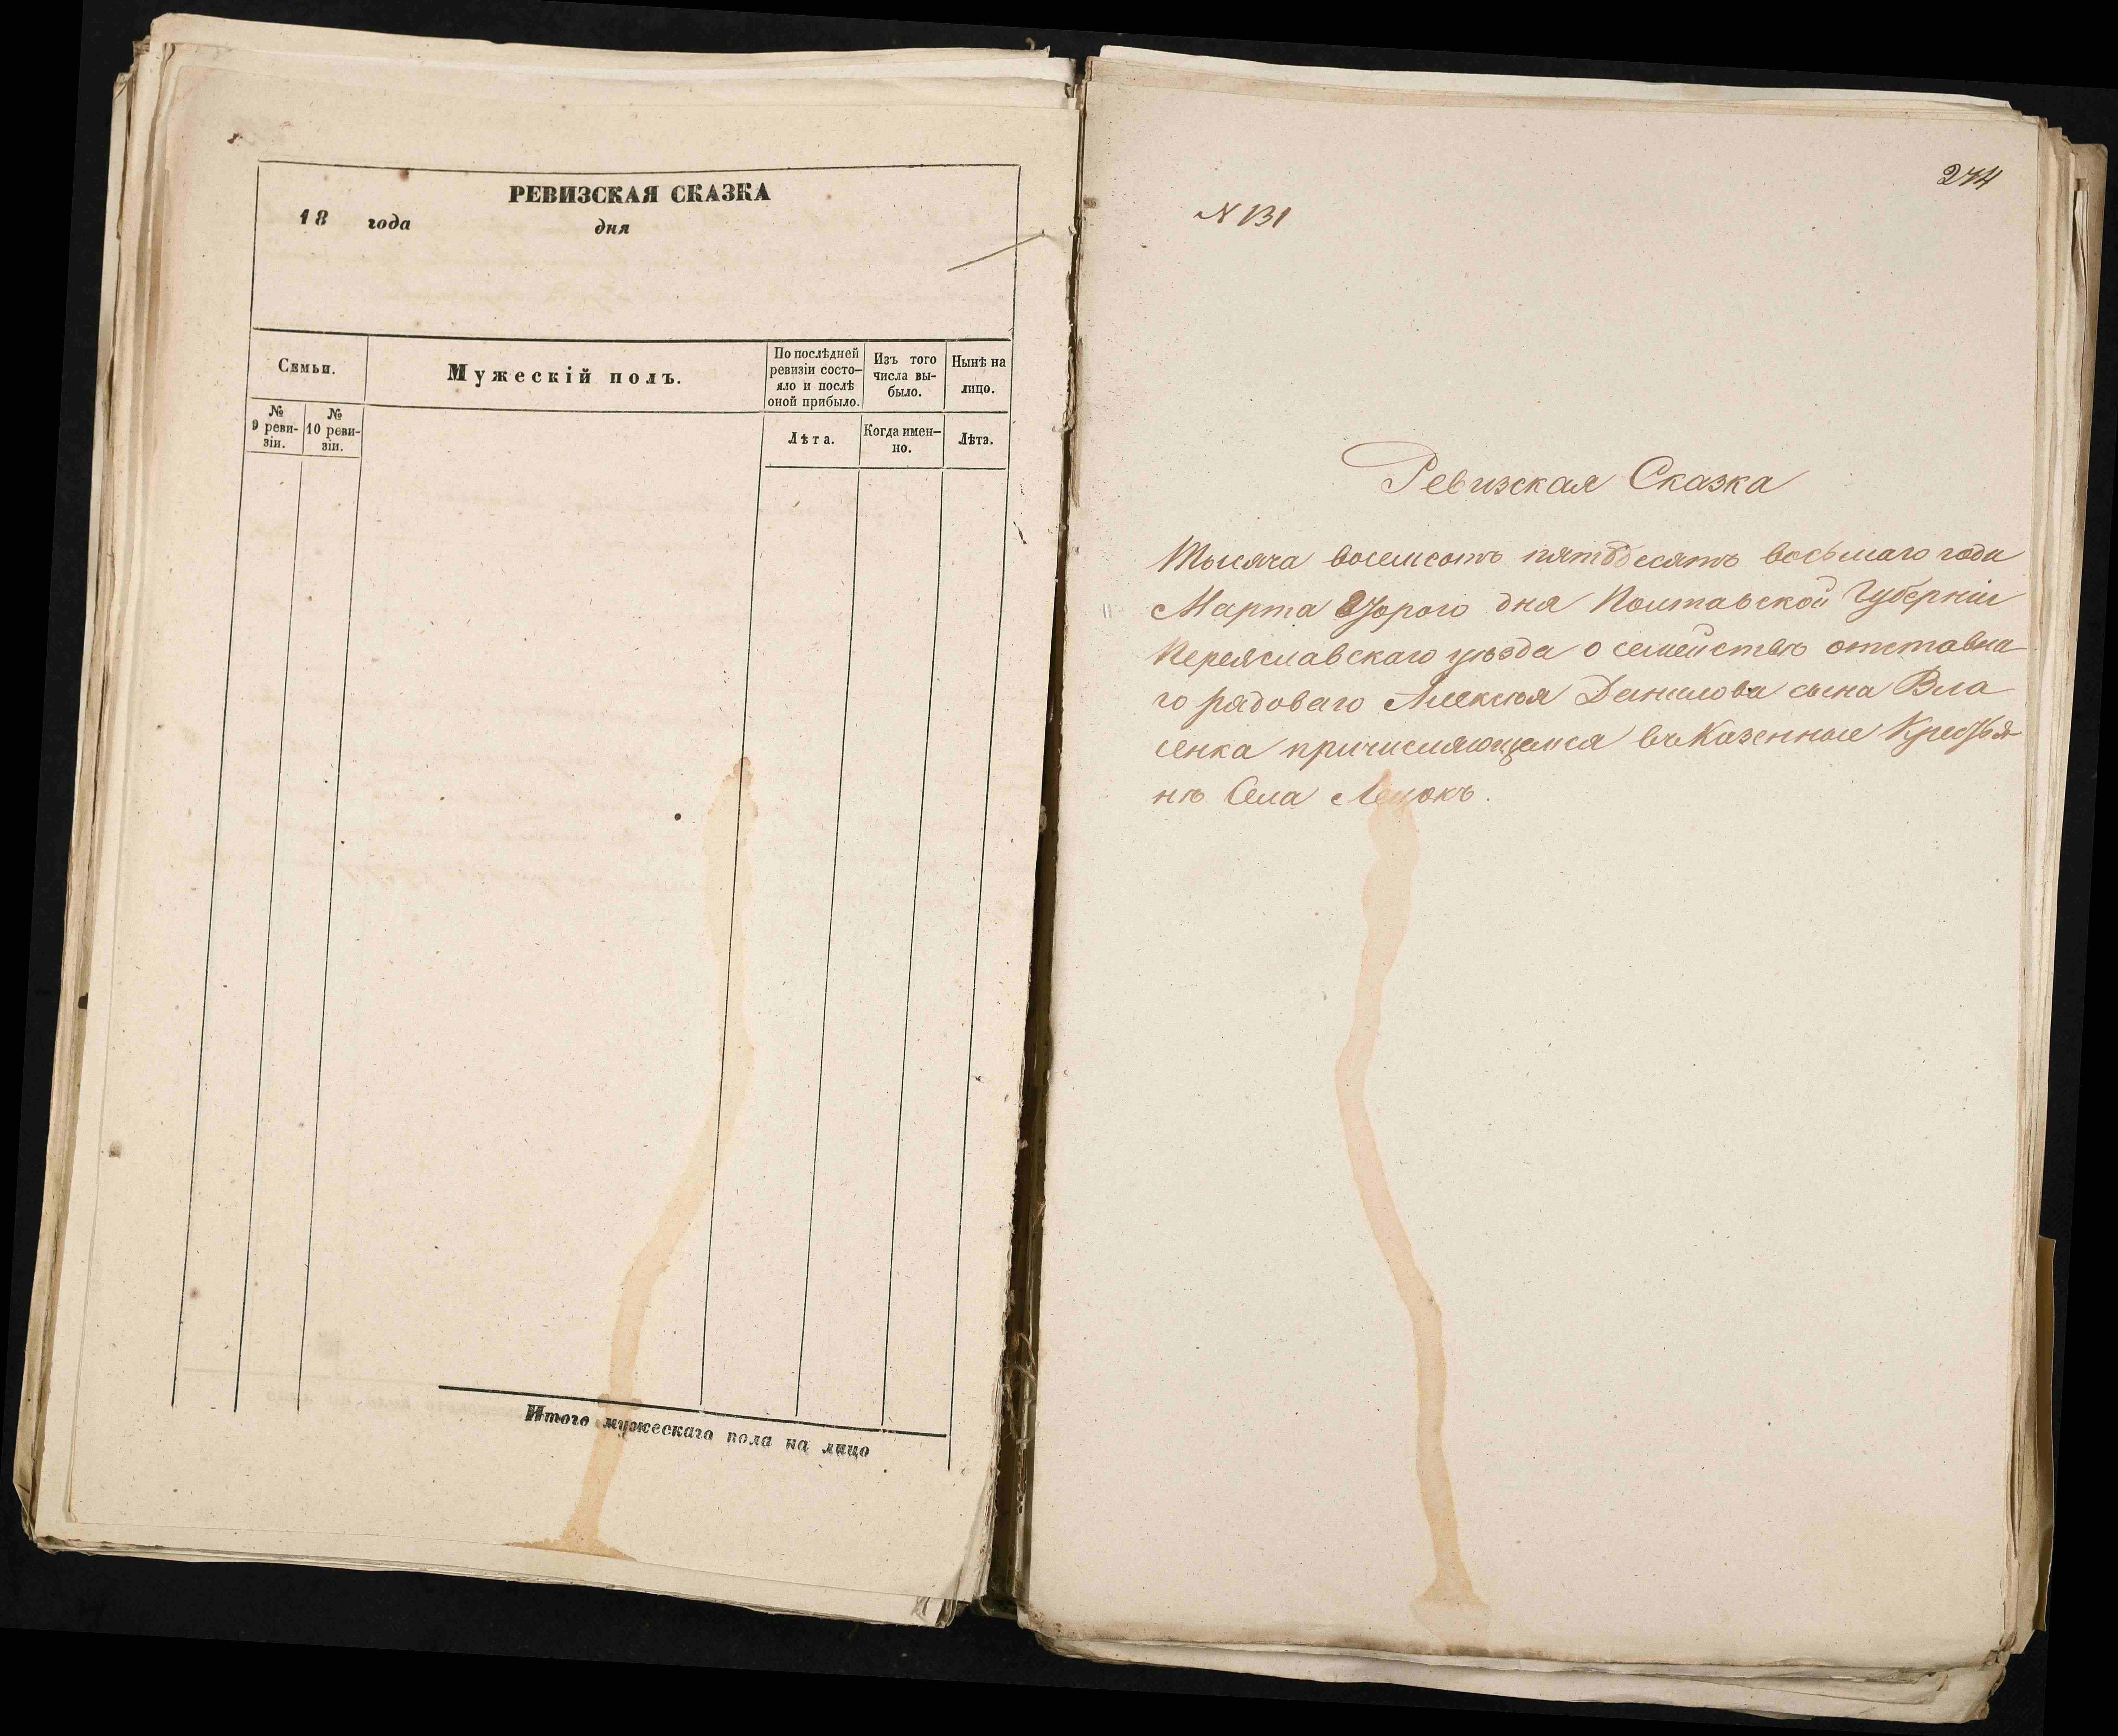 РЕВИЗСКАЯ СКАЗКА
18 года дня
Семьи.
Мужескій полъ.
По послѣдней
ревизіи состо-
яло и послѣ
оной прибыло.
Изъ того
числа вы-
было.
Нынѣ на
лицо.
№
9 реви-
зіи.
№
10 реви-
зіи.
Лѣта.
Когда имен-
но.
Лѣта.
Итого мужескаго пола на лицо
274
N 131
Ревизская Сказка
Тысяча восемсотъ пятдесятъ восьмаго года
Марта Второго дня Полтавской Губерніи
Переяславскаго уѣзда о семействѣ отставна
го рядоваго Алексѣя Данилова сына Вла
сенка причисляющемся въ Казенные Кресья
нѣ Села Лецокъ.